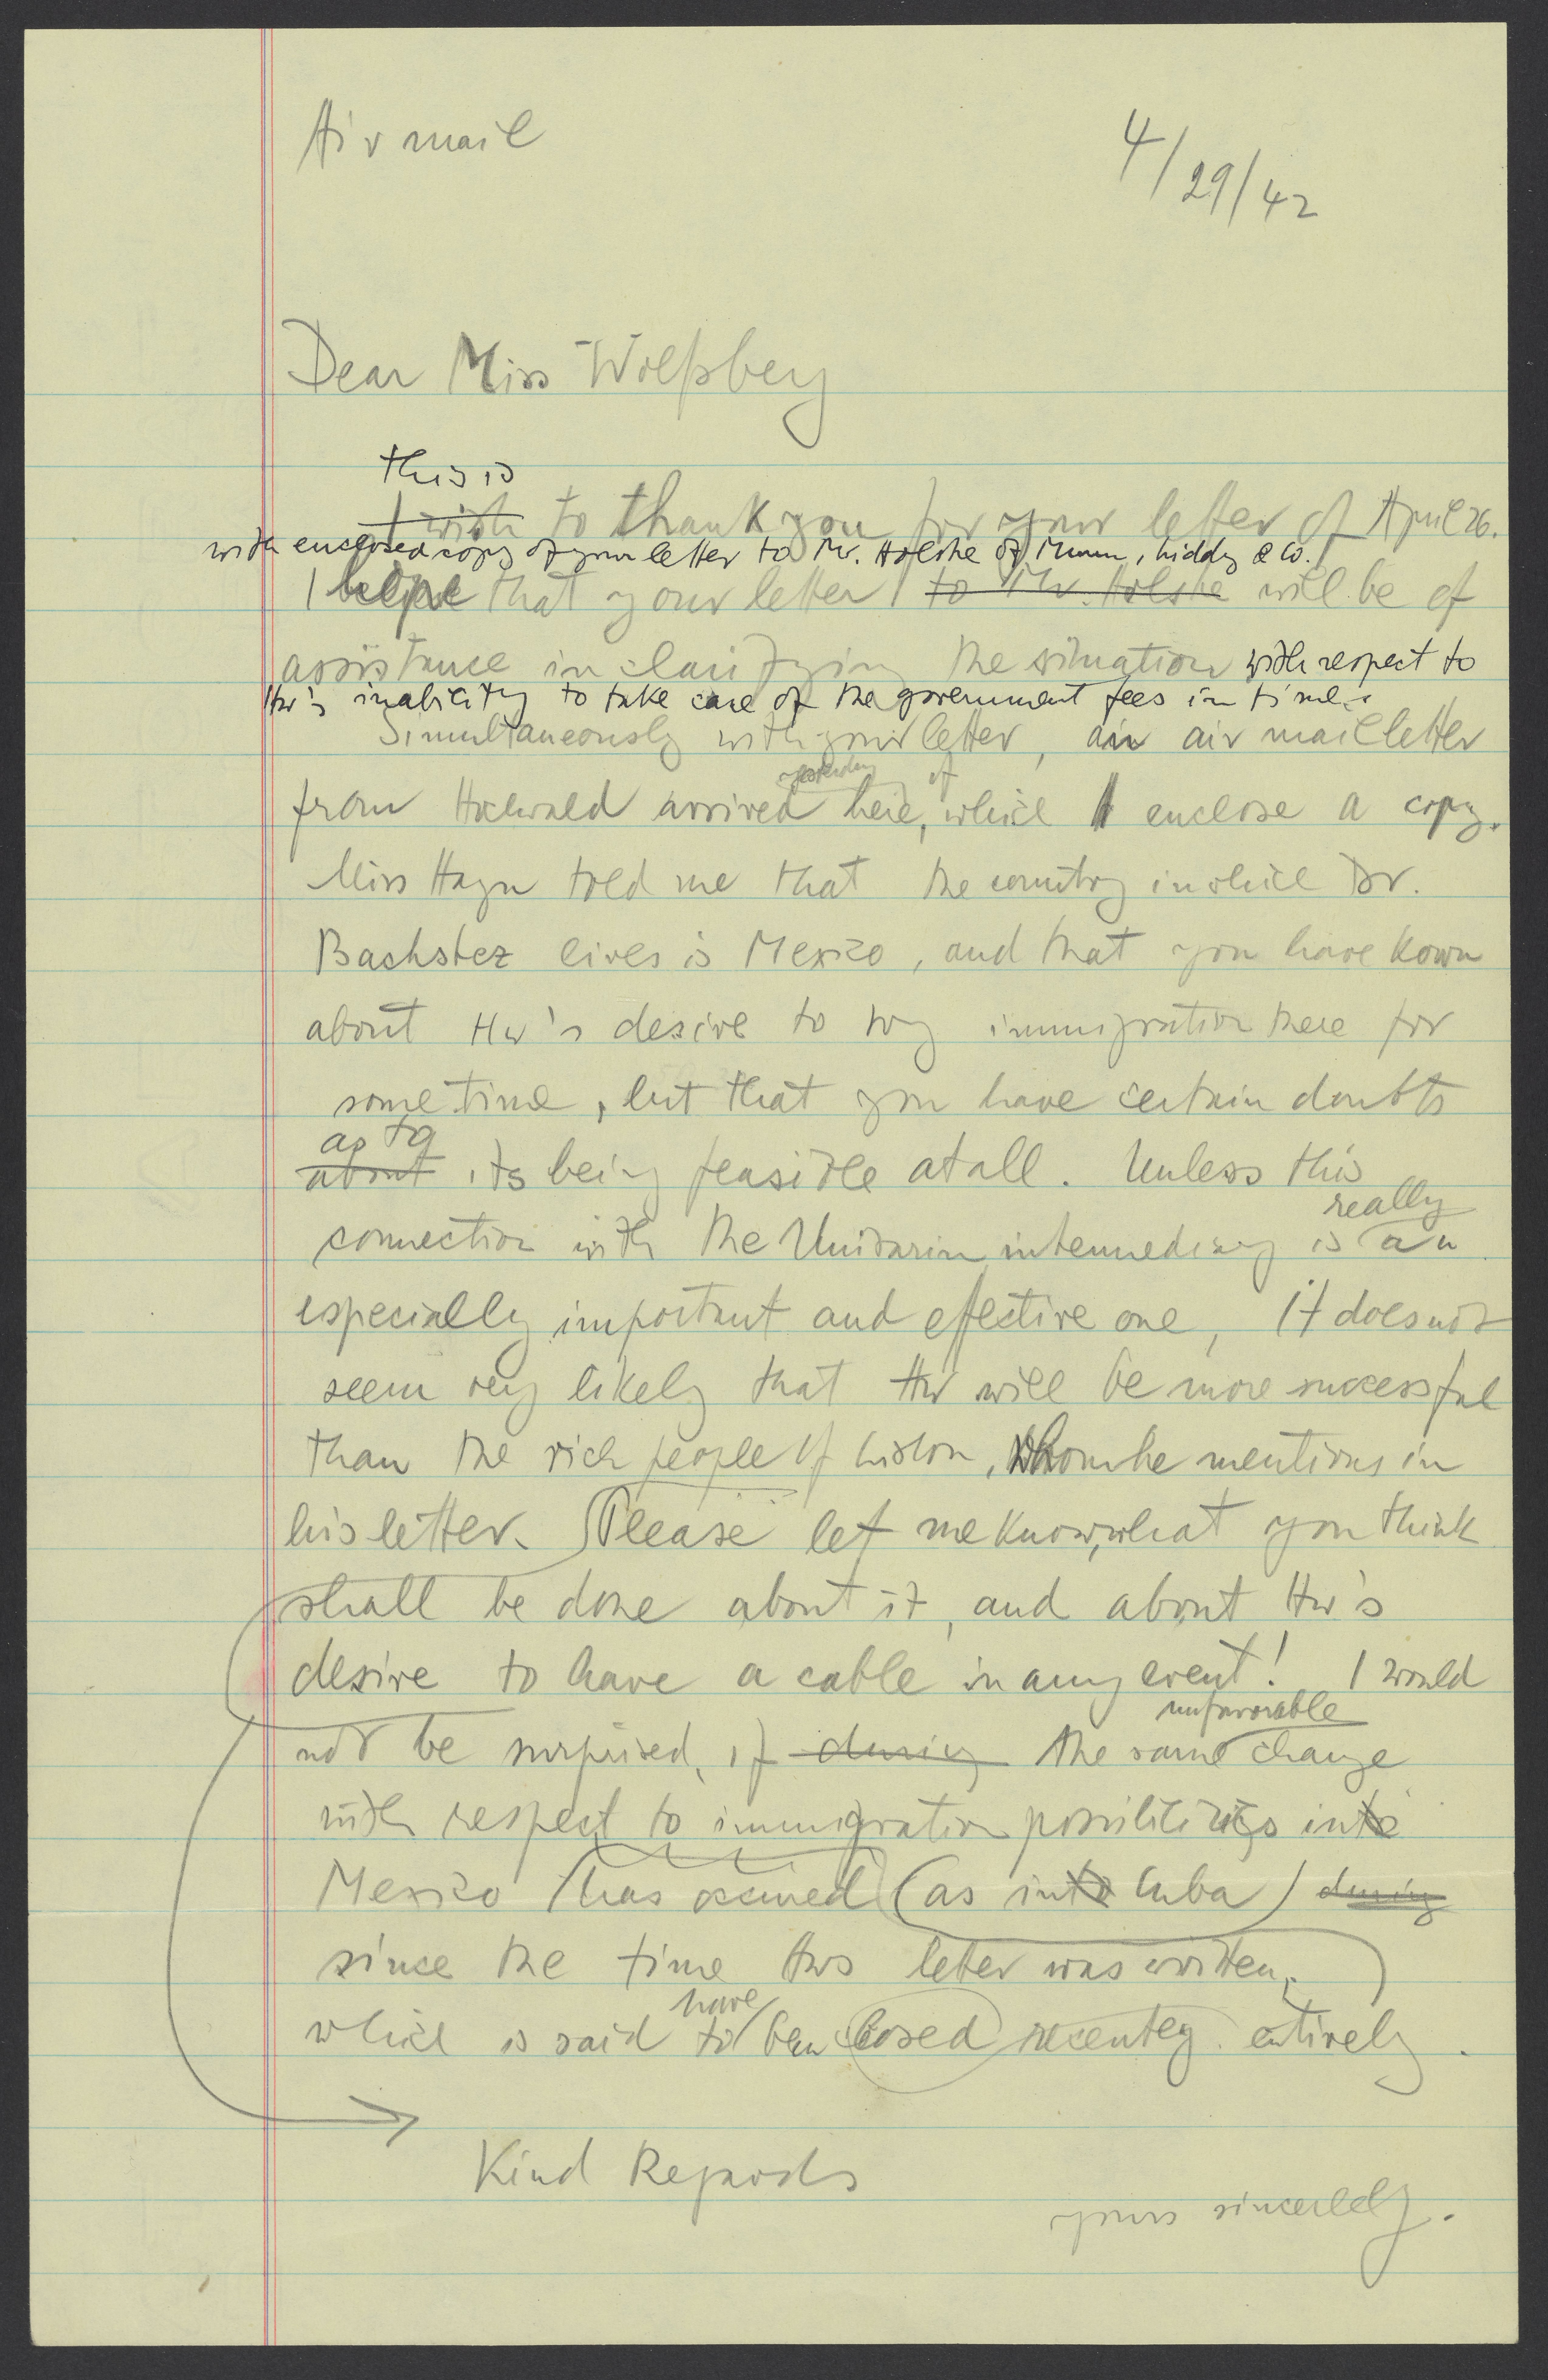 Airmail
4/29/42
Dear Miss Wolfsberg
this is
I wish to thank you for your letter of April 26.
with enclosed copy of your letter to Mr. Holske of Munn, Liddy & Co.
I hope that your letter to Mr. Holske will be of
assistance in clarifying the situation with respect to
Hw's inability to take care of the government fees in time.
Simultaneously with your letter, an air mail letter
yesterday of
from Hochwald arrived here, which I enclose a copy.
Miss Hagen told me that the country in which Dr.
Bachstez lives is Mexico, and that you have kown
about Hw's desire to try immigration there for
some time, but that you have certain doubts
as to
about its being feasible at all. Unless this
really
connection with the Unitarin intermediary is an
especially important and effective one, it does not
seem very likely that Hw will be more successful
than the rich people of Lisbon, whom he mentions in
his letter. Please let me know, what you think
shall be done about it, and about Hw's
desire to have a cable in any event! I would
unfavorable
not be surprised, if during the same change
with respect to immigration possibilities into
Mexico has occured (as into Cuba) during
since the time Hws letter was written,
have
which is said to been closed recently entirely.
Kind Regards
yours sincerely.